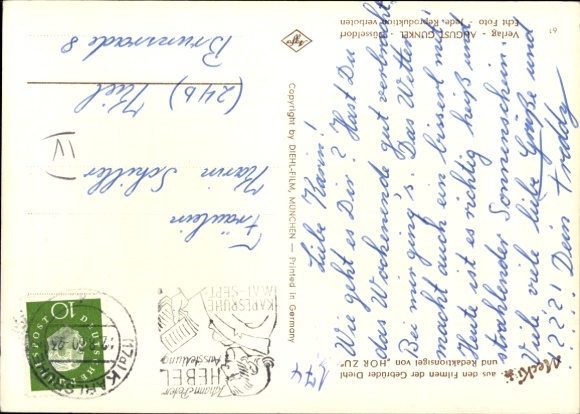 Mecki
aus den Filmen der Gebrüder Diehl
und Redaktionsigel von „HÖR ZU“
Verlag - AUGUST GUNKEL - Düsseldorf
Echt Foto - Jede Reproduktion verboten
61
Agfa
Copyright by DIEHL-FILM, MÜNCHEN — Printed in Germany
174
Liebe Karin!
Wie geht es Dir? Hast Du
das Wochenende gut verbracht
Bei mir ging's. Das Wetter
macht auch ein bisserl mit
Heute ist es richtig heiß und
strahlender Sonnenschein.
Viele viele liebe Grüße und
???! Dein Freddy
Johann Peter
HEBEL
Ausstellung
KARLSRUHE
MAI-SEPT.
(17a) KARLSRUHE
DEUTSCHE BUNDESPOST
10
Fräulein
Karin Schiller
(24b) Kiel
Brunsrade 8
IV